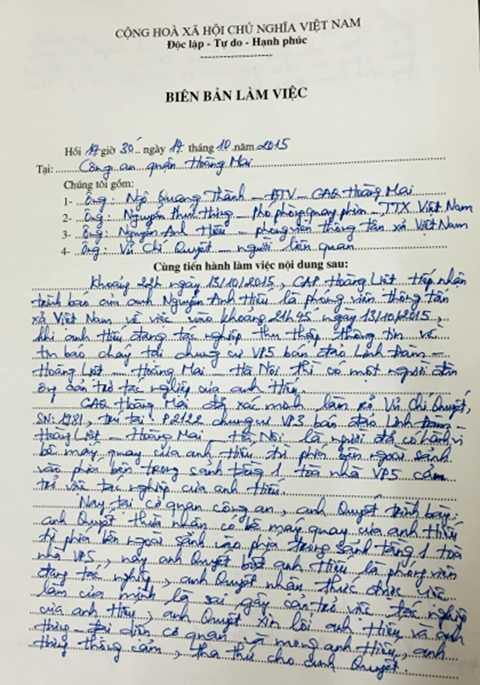 CỘNG HOÀ XÃ HỘI CHỦ NGHĨA VIỆT NAM
Độc lập - Tự do - Hạnh phúc
BIÊN BẢN LÀM VIỆC
Hồi 17 giờ 30 ngày 17 tháng 10 năm 2015
Tại: Công an quận Hoàng Mai
Chúng tôi gồm:
1- Ông: Ngô Quang Thành - ĐTV - CAQ Hoàng Mai
2- Ông: Nguyễn - phó phòng quay phim - TTX Việt Nam
3- Ông: Nguyễn Anh Hiếu - phóng viên thông tấn xã Việt Nam
4- Ông: Vũ Chí Quyết - người liên quan
Cùng tiến hành làm việc nội dung sau:
Khoảng 22h ngày 13/10/2015, CAP Hoàng Liệt tiếp nhận
trình báo của anh Nguyễn Anh Hiếu là phóng viên thông tấn
xã Việt Nam về việc vào khoảng 21h45 ngày 13/10/2015,
khi anh Hiếu đang tác nghiệp thu thập thông tin về
tin báo cháy tại chung cư VP5 bán đảo Linh Đàm -
Hoàng Liệt - Hoàng Mai - Hà Nội thì có một người đàn
ông cản trở tác nghiệp của anh Hiếu.
CAQ Hoàng Mai đã xác minh làm rõ Vũ Chí Quyết,
SN: 1981, trú tại: P2122 chung cư VP3 bán đảo Linh Đàm -
Hoàng Liệt - Hoàng Mai - Hà Nội là người đã có hành vi
bê máy quay của anh Hiếu từ phía bên ngoài sảnh
vào phía bên trong sảnh tầng 1 tòa nhà VP5 cản
trở việc tác nghiệp của anh Hiếu.
Nay tại cơ quan công an, anh Quyết trình bày:
anh Quyết thừa nhận có bê máy quay của anh Hiếu
từ phía bên ngoài sảnh vào phía trong sảnh tầng 1 tòa
nhà VP5, nay anh Quyết biết anh Hiếu là phóng viên
đang tác nghiệp, anh Quyết nhận thức được việc
làm của mình là sai, gây cản trở việc tác nghiệp
của anh Hiếu, anh Quyết xin lỗi anh Hiếu và anh
- đại diện cơ quan và mong anh Hiếu, anh
thông cảm, tha thứ cho anh Quyết.